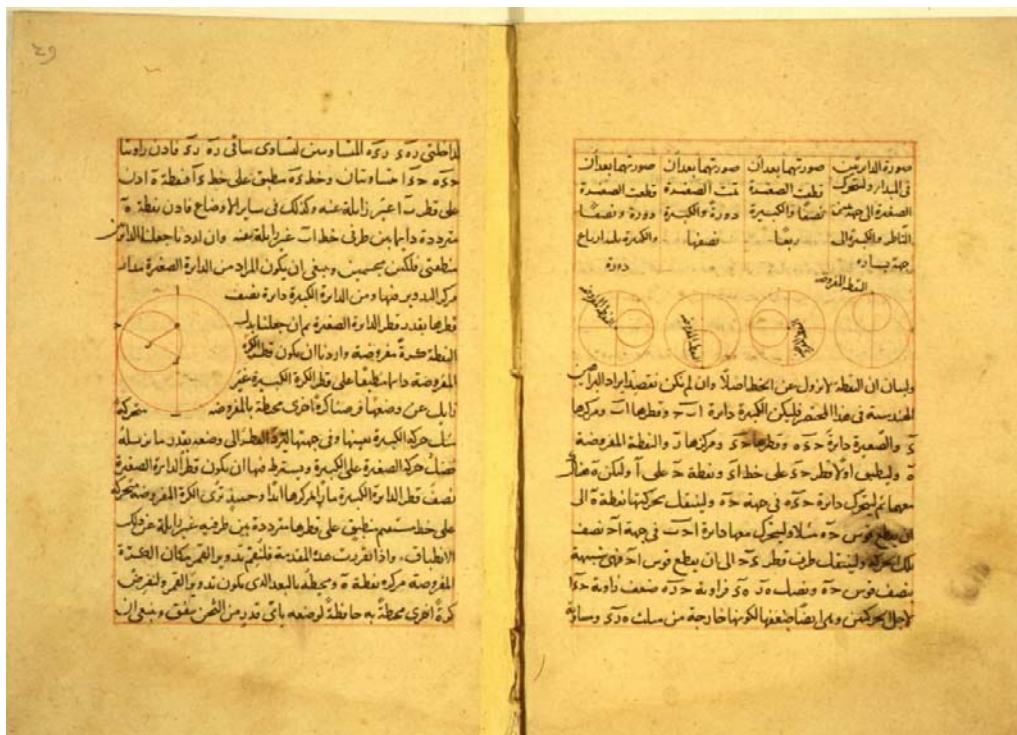 صورة الدايرتين
فى المبدا وليتحرك
الصغيرة الى جهة يمين
الناظر والكبيرة الى
جهة يساره
صورتهما بعد ان
قطعت الصغيرة
نصفًا والكبيرة
ربعًا
صورتهما بعد ان
تمت الصغيرة
دورةً والكبيرة
نصفها
صورتهما بعد ان
قطعت الصغيرة
دورة ونصفًا
والكبيرة ثلثة ارباع
دورة
النقطة المفروضة
النقطة المفروضة
النقطة المفروضة
ولبيان ان النقطة لا تزول عن الخط اصلًا وان لم نكن نقصد ايراد البراهين
الهندسية فى هذا المختصر فليكن الكبيرة دايرة اب ح وقطرها اب ومركزها
ء والصغيرة دايرة ح ء ه وقطرها ح ء ومركزها ر والنقطة المفروضة
ه وليطبق اولًا قطر ح ء على خط اء ونقطة ح على آ وليكن ه هناك
معهما ثم ليتحرك دايرة ح ء ه فى جهة ح ه ولينتقل بحركتها نقطة ه الى
ان يقطع قوس ح ه مثلا وليتحرك معها دايرة اح ب فى جهة اح نصف
تلك الحركة ولينتقل طرف قطر ء ح الى ان يقطع قوس اح فهى شبيهة
بنصف قوس ح ه ونصل ه ر ه ء فزاوية ح ر ه ضعف زاوية ح ء ا
لاجل الحركتين وهى ايضًا ضعف لكونها خارجة من مثلث ه ر ء ومساوية
لداخلتى ر ه ء ر ء ه المتساويتين لتساوى ساقى ر ه ر ء فاذن زاويتا
ح ء ه ح ء ا متساويتان وخط ء ه منطبق على خط ء آ فنقطة ه اذن
على قطر ب آ غير زايلة عنه وكذلك فى ساير الاوضاع فاذن نقطة ه
مترددة دايما بين طرفى خط اب غير زايلة عنه وان اردنا جعلنا الدايرتين
منطقتى فلكين مجسمين وينبغى ان يكون المراد من الدايرة الصغيرة مدار
مركز التدوير فيها ومن الدايرة الكبيرة دايرة نصف
قطرها بقدر قطر الدايرة الصغيرة ثم ان جعلنا بدل
النقطة كرةً مفروضة واردنا ان يكون قطر الكرة
المفروضة دايما منطبقًا على قطر الكرة الكبيرة غير
زايل عن وضعها فرضنا كرةً اخرى محيطة بالمفروضة متحركة
مثل حركة الكبيرة بعينها وفى جهتها ليرد القطر الى وضعه بقدر ما يزيله
فضل حركة الصغيرة على الكبيرة ويشترط فيها ان يكون قطر الدايرة الصغيرة
نصف قطر الدايرة الكبيرة مارًا بمركزها ابدًا وحينئذ ترى الكرة المفروضة متحركة
على خط مستقيم منطبق على قطرها مترددة بين طرفيه غير زايلة عن ذلك
الانطباق واذا تقررت هذه المقدمة فلنقم تدوير القمر مكان الكرة
المفروضة مركزه نقطة ه ومحيطه بالبعد الذى يكون تدوير القمر ولنفرض
كرةً اخرى محيطةً به حافظةً لوضعه باى قدر من الثخن يتفق وينبغى ان